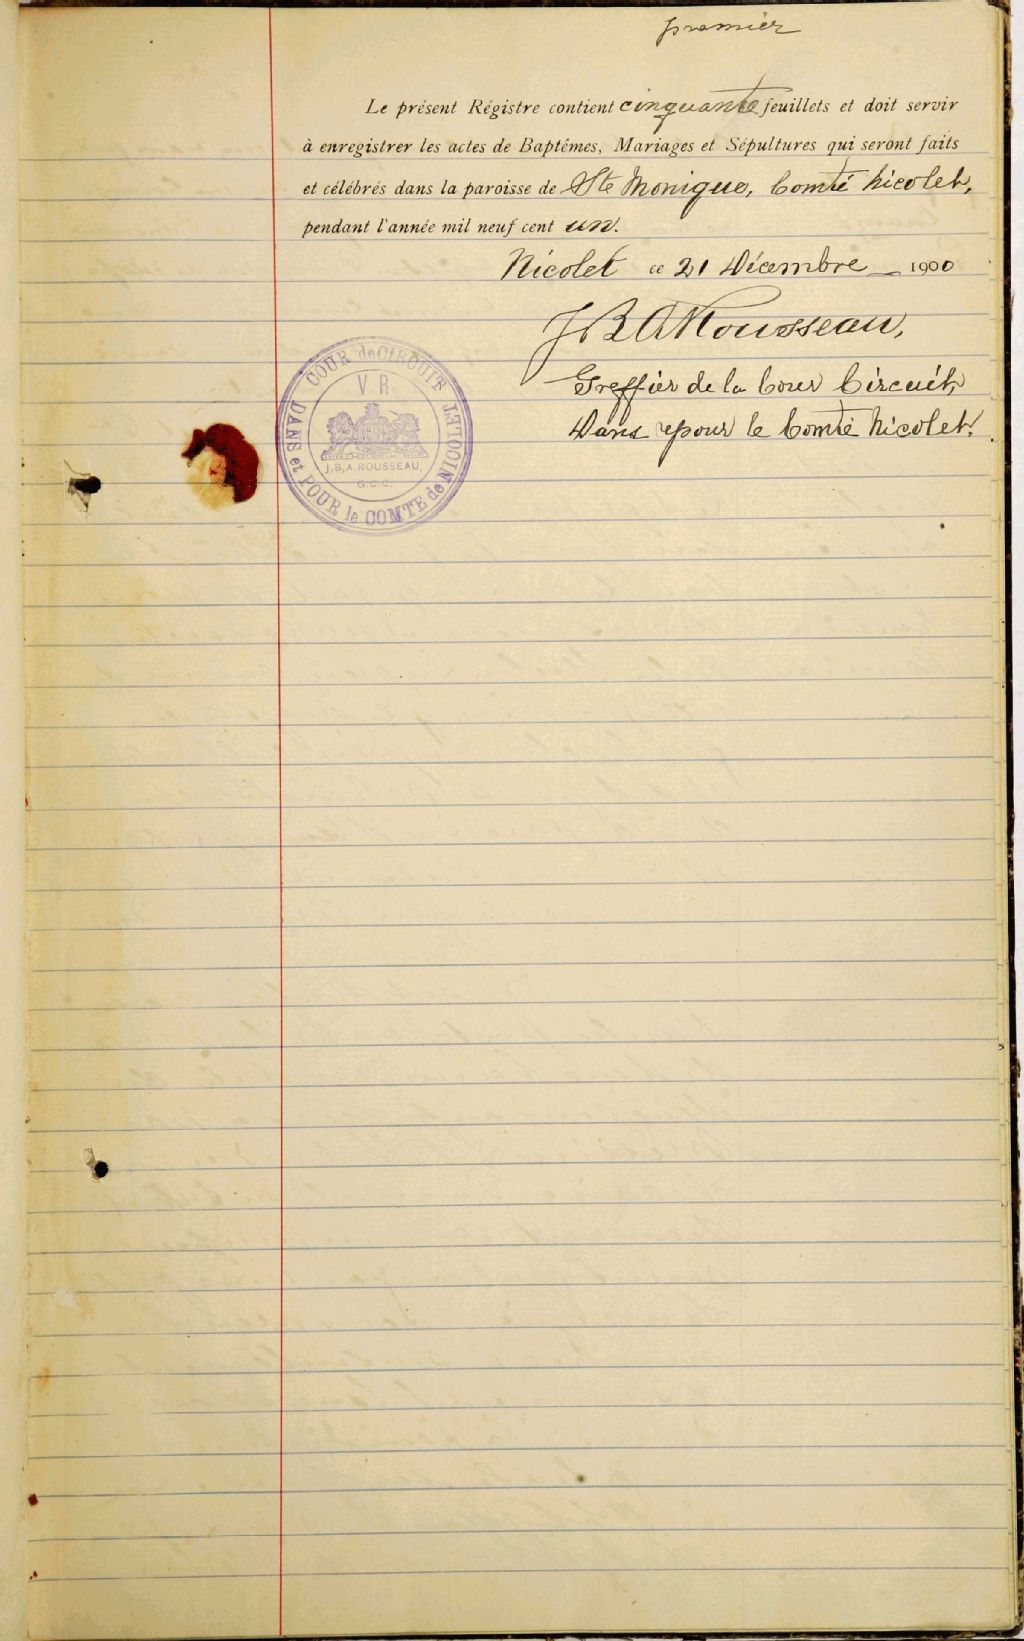 premier
Le présent Régistre contient cinquante feuillets et doit servir
à enregistrer les actes de Baptêmes, Mariages et Sépultures qui seront faits
et célébrés dans la paroisse de Ste Monique, Comté Nicolet,
pendant l'année mil neuf cent un.
Nicolet ce 21 Décembre 1900
J B A Rousseau,
Greffier de la Cour Circuit,
Dans & pour le Comté Nicolet.
COUR de CIRCUIT
DANS et POUR le COMTE de NICOLET
V R
J.B.A. ROUSSEAU,
G.C.C.